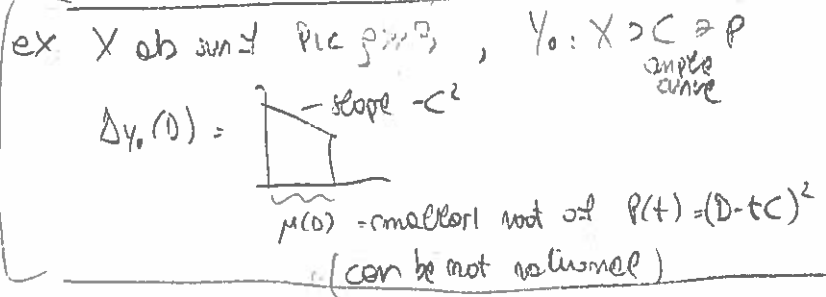 ex X ab surf Pic , Y₀: X ⊃ C ∋ P
ample
curve
Δ_{Y₀}(D) = slope -C²
μ(D) = smallest root of P(t) = (D-tC)²
(can be not rational)